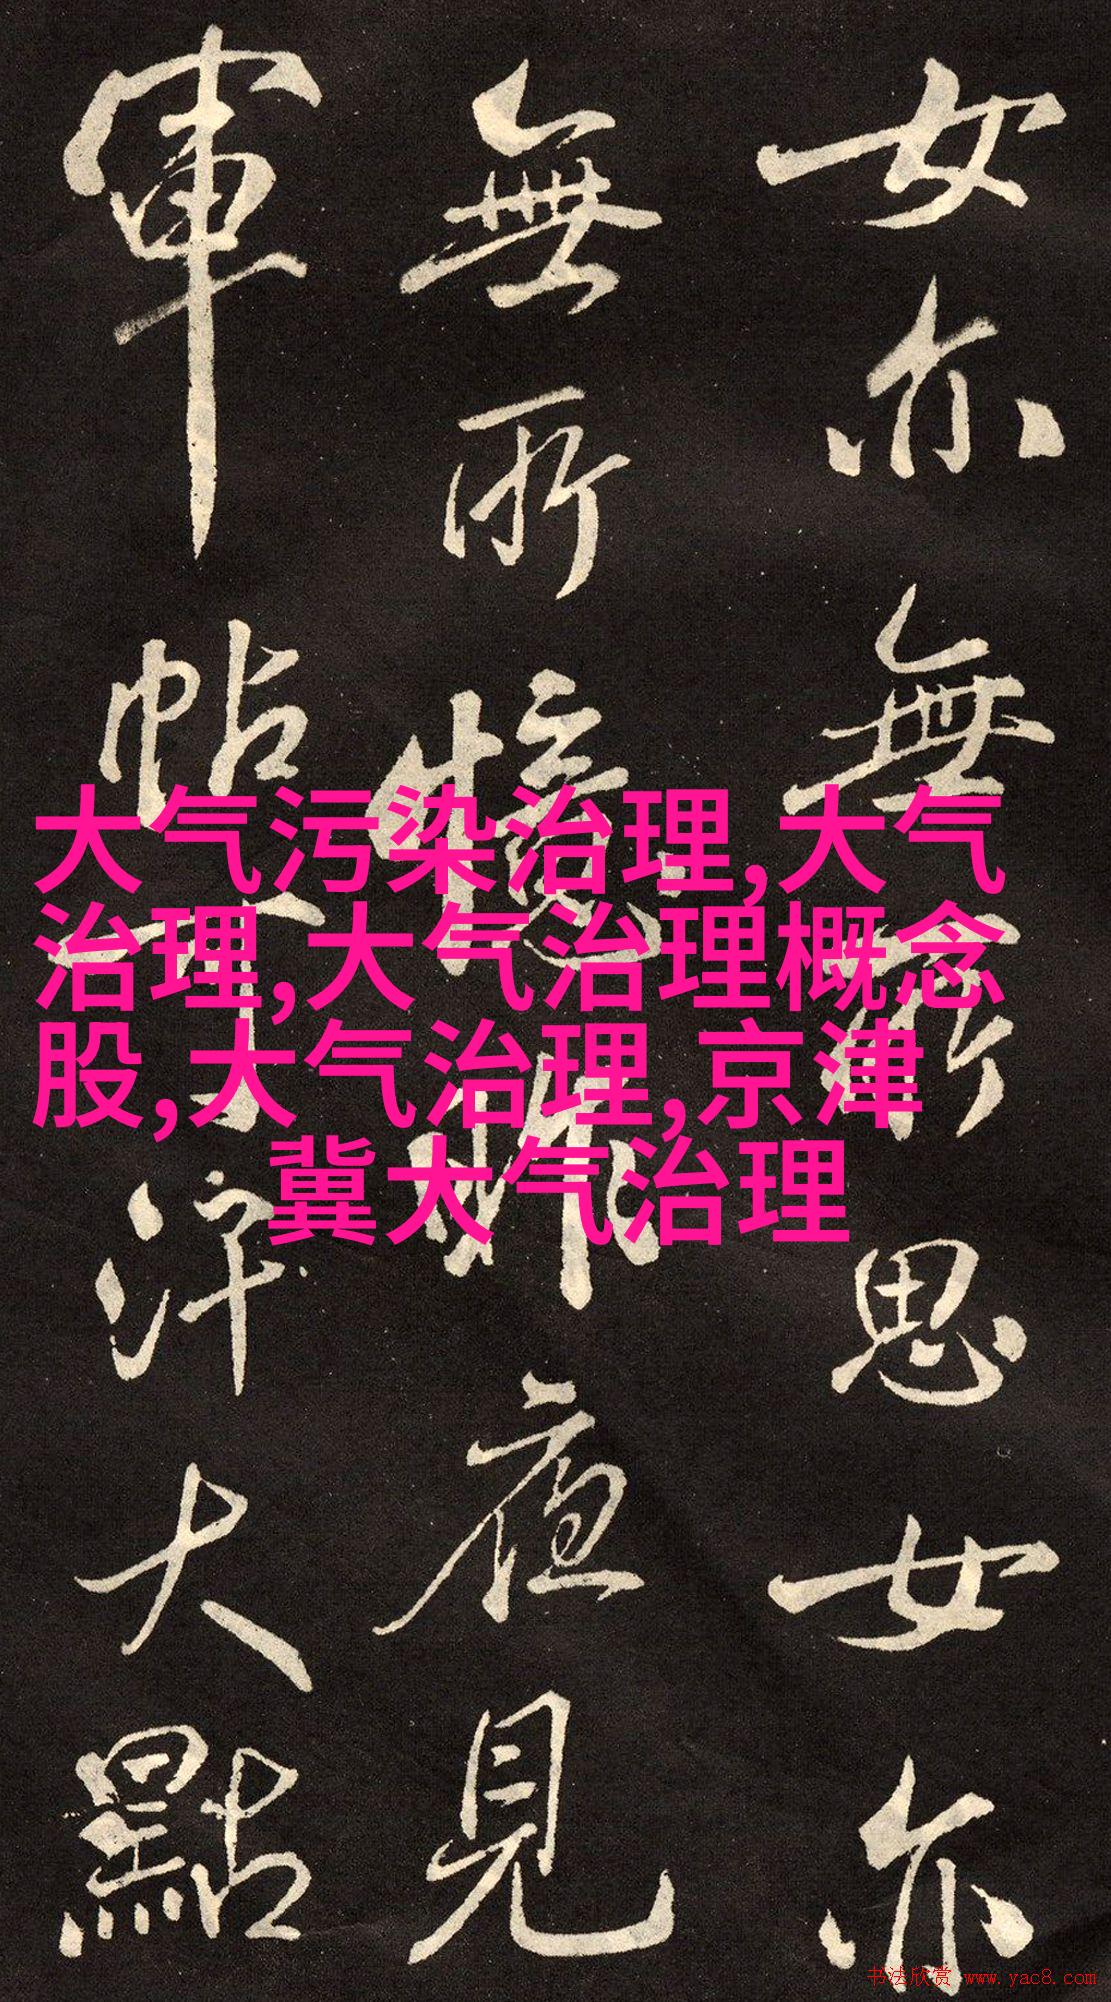 女亦無所思女亦
無所憶昨夜見
軍帖可汗大點
大气污染治理,大气
治理,大气治理概念
股,大气治理,京津
冀大气治理
书法欣赏 www.yac8.com